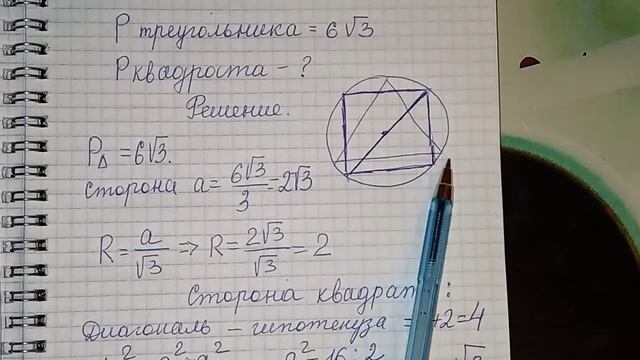 P треугольника = 6√3
P квадроста - ?
Решение.
P△ = 6√3.
сторона a = 6√3/3 = 2√3
R = a/√3 => R = 2√3/√3 = 2
Сторона
Диагональ - гипотенуза =